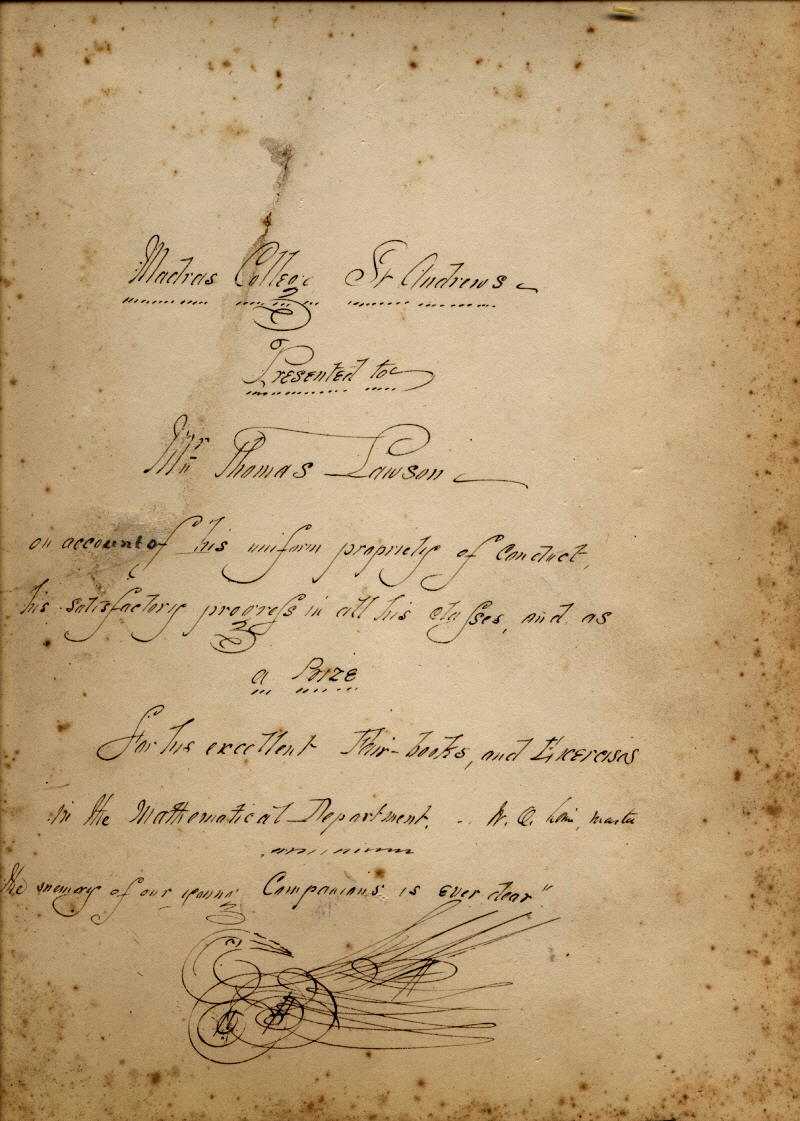 Madras College St Andrews
Presented to
Mr Thomas Lawson
on account of his uniform propriety of conduct,
his satisfactory progress in all his classes, and as
a Prize
for his excellent Fair-books, and Exercises
in the Mathematical Department. W. O. master
the memory of our young Companions is ever dear"